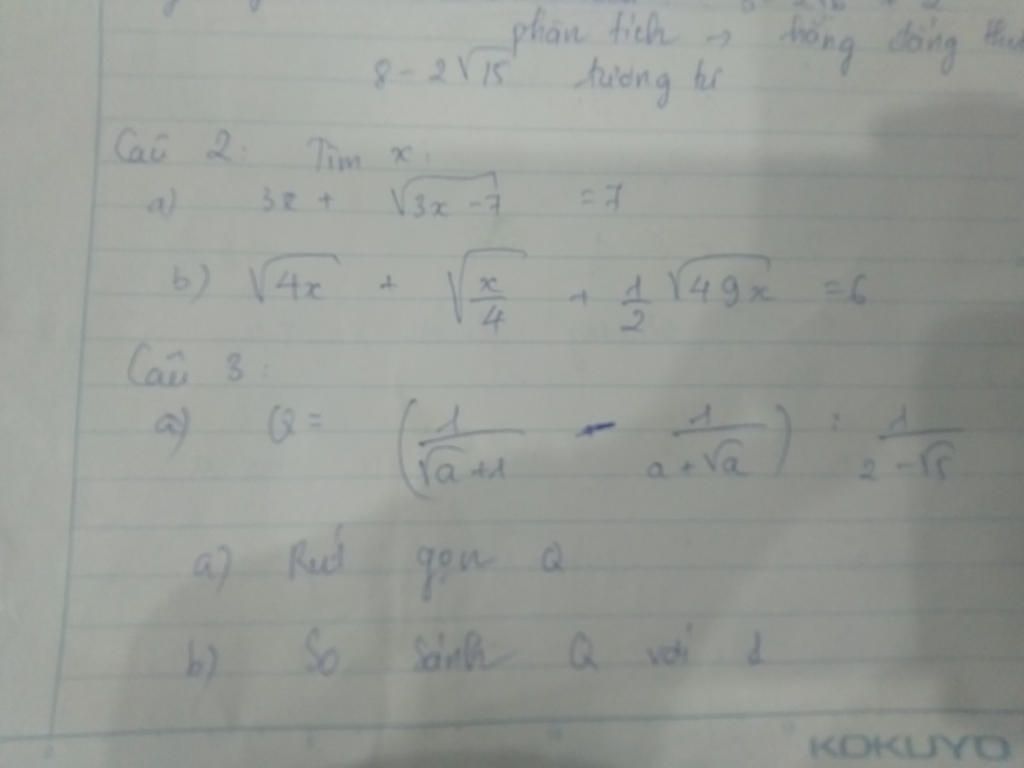 phân tích → hằng đẳng thức
8 - 2√15 tương tự
Câu 2: Tìm x:
a) 3x + √(3x - 7) = 7
b) √(4x) + √(x/4) + 1/2 √(49x) = 6
Câu 3:
a) Q = (1/(√a + 1) - 1/(a + √a)) :
a) Rút gọn Q
b) So sánh Q với 1
KOKUYO